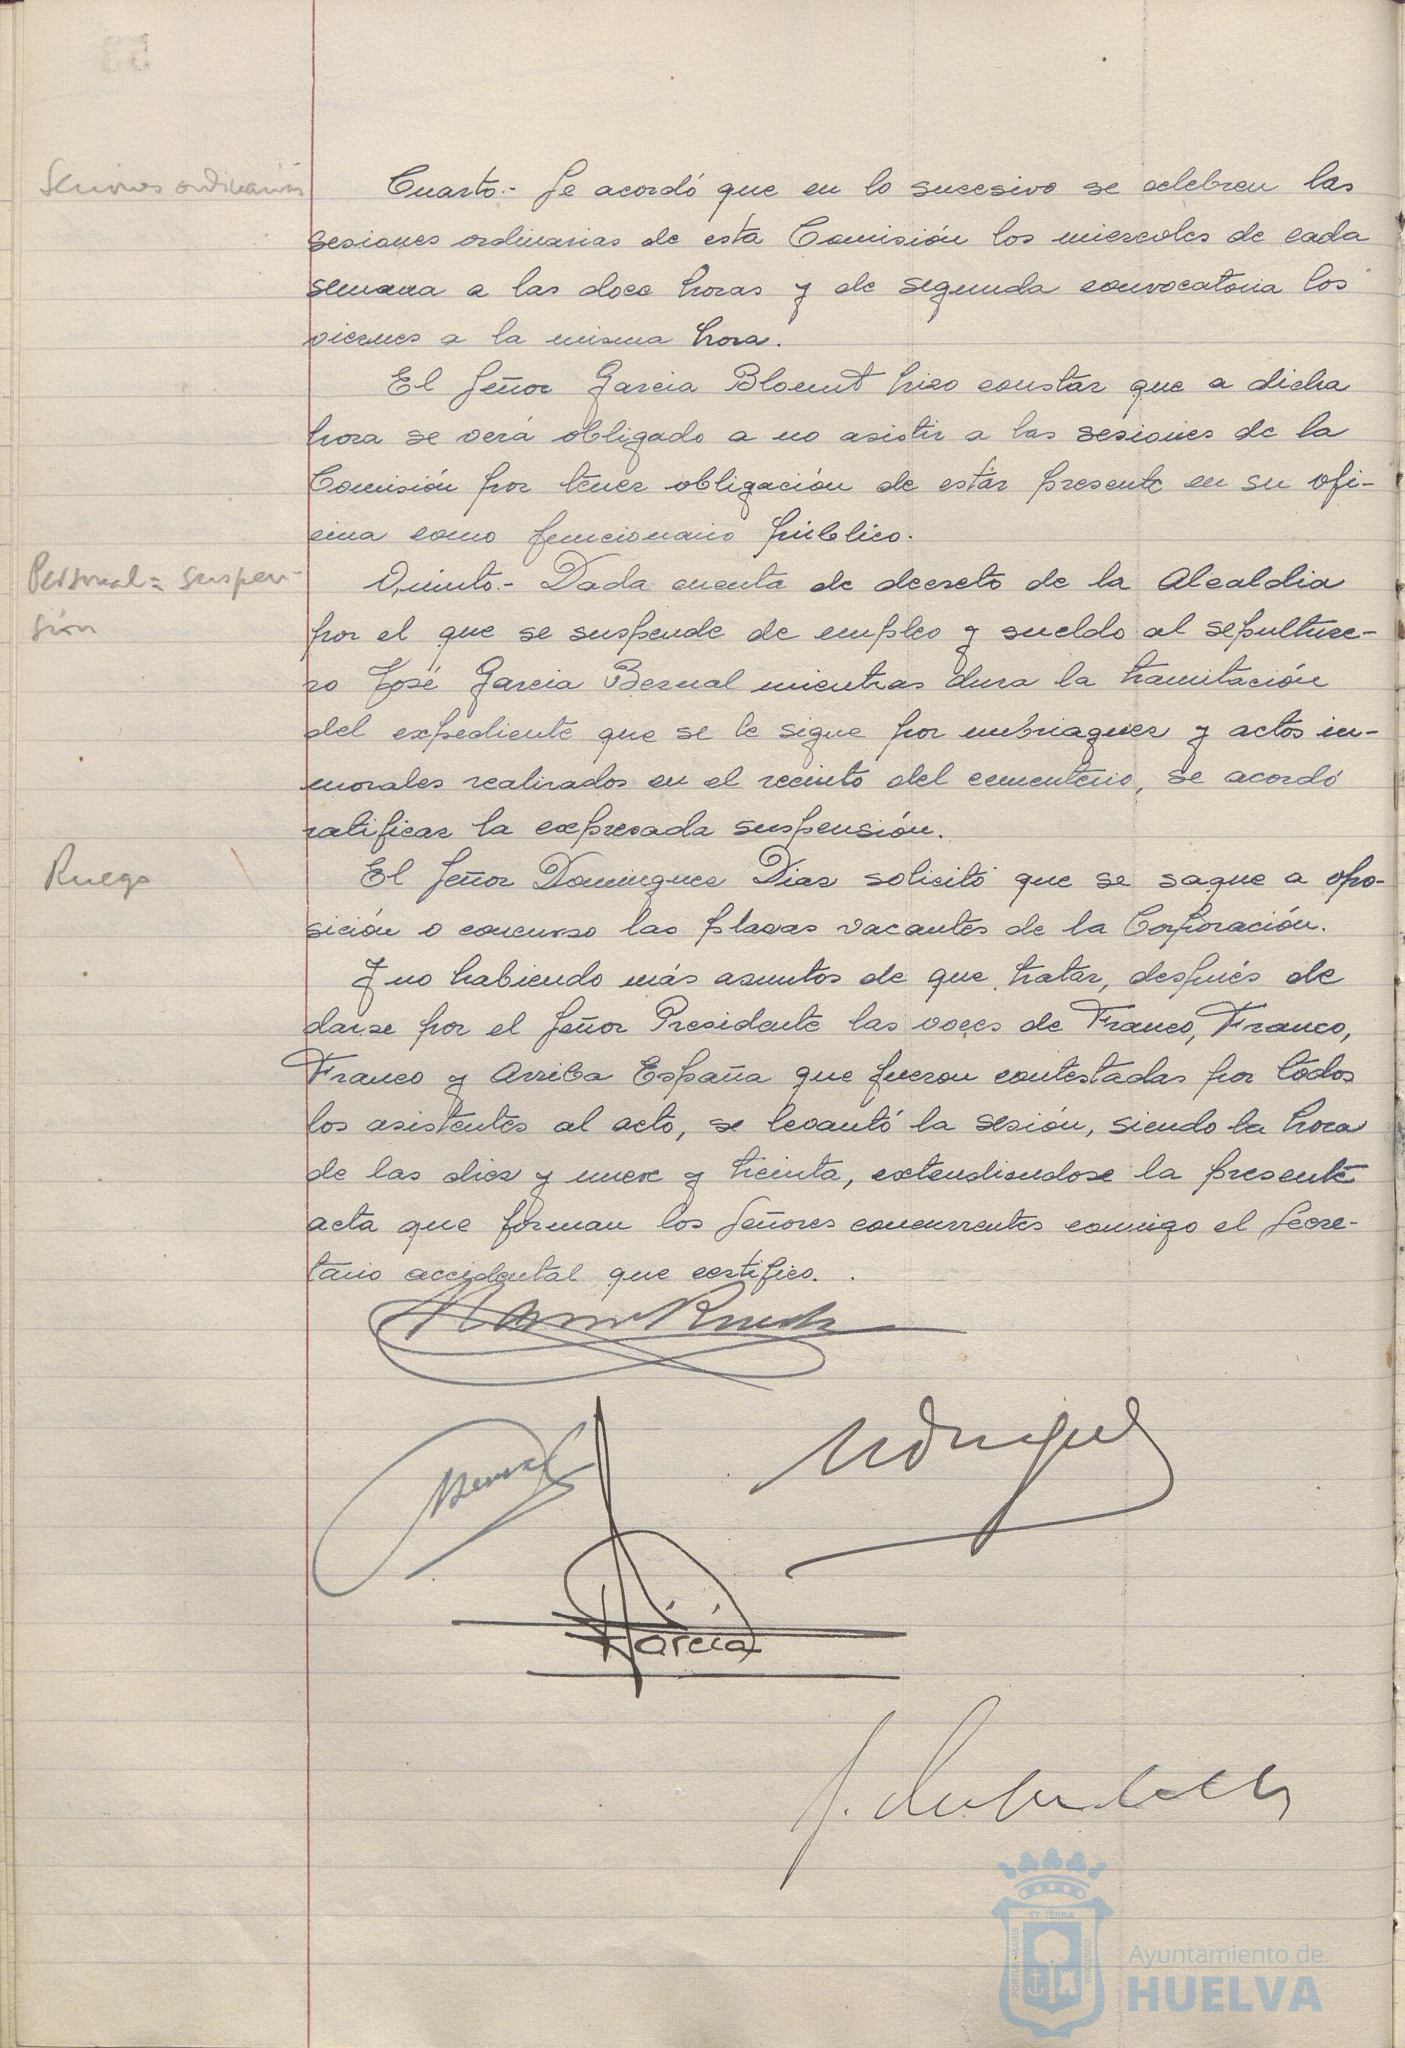 Sesiones ordinarias
Cuarto.- Se acordó que en lo sucesivo se celebren las
sesiones ordinarias de esta Comisión los miercoles de cada
semana a las doce horas y de segunda convocatoria los
viernes a la misma hora.
El Señor Garcia Blount hizo constar que a dicha
hora se verá obligado a no asistir a las sesiones de la
Comisión por tener obligación de estar presente en su ofi-
cina como funcionario público.
Personal = suspen-
sión
Quinto.- Dada cuenta de decreto de la Alcaldia
por el que se suspende de empleo y sueldo al sepulture-
ro José Garcia Bernal mientras dura la tramitación
del expediente que se le sigue por embriaguez y actos in-
morales realizados en el recinto del cementerio, se acordó
ratificar la expresada suspensión.
Ruego
El Señor Dominguez Diaz solicitó que se saque a opo-
sición o concurso las plazas vacantes de la Corporación.
Y no habiendo más asuntos de que tratar, después de
darse por el Señor Presidente las voces de Franco, Franco,
Franco y Arriba España que fueron contestadas por todos
los asistentes al acto, se levantó la sesión, siendo la hora
de las diez y nueve y treinta, extendiendose la presente
acta que firman los Señores concurrentes conmigo el Secre-
tario accidental que certifico.
Garcia
ET TERRA
PORTUS MARIS
CUSTODIA
Ayuntamiento de
HUELVA